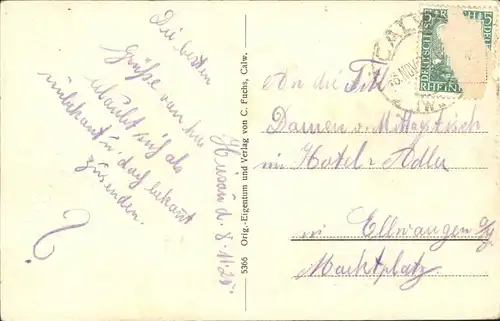 Die besten
Grüße von hier
erlaubt sich als
unbekant u. doch bekant
zusenden.
?
Hirsau d. 8.11.25
5366 Orig.-Eigentum und Verlag von C. Fuchs, Calw.
CALW
NOV
5 5
DEUTSCHES
RHEIN
An die Titl
Damen v. Mittagstisch
im Hotel z Adler
Ellwangen a/J
Marktplatz